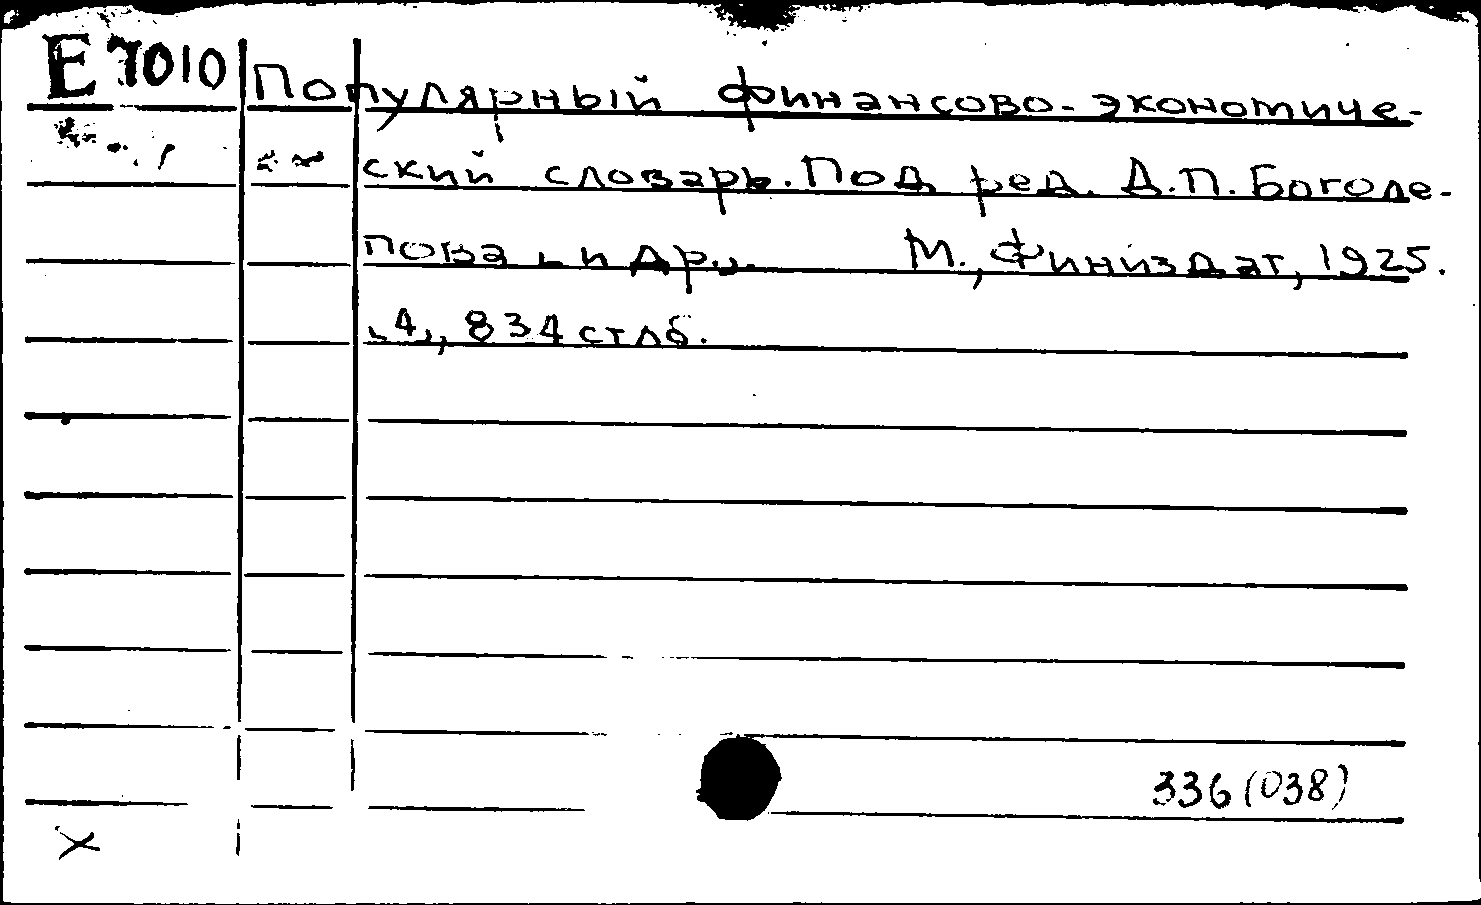 Е 7010 Популярный финансово-экономиче-
ский словарь. Под ред. Д.П. Боголе-
пова и др. М., Финиздат, 1925.
4, 834 стлб.
336 (038)
X